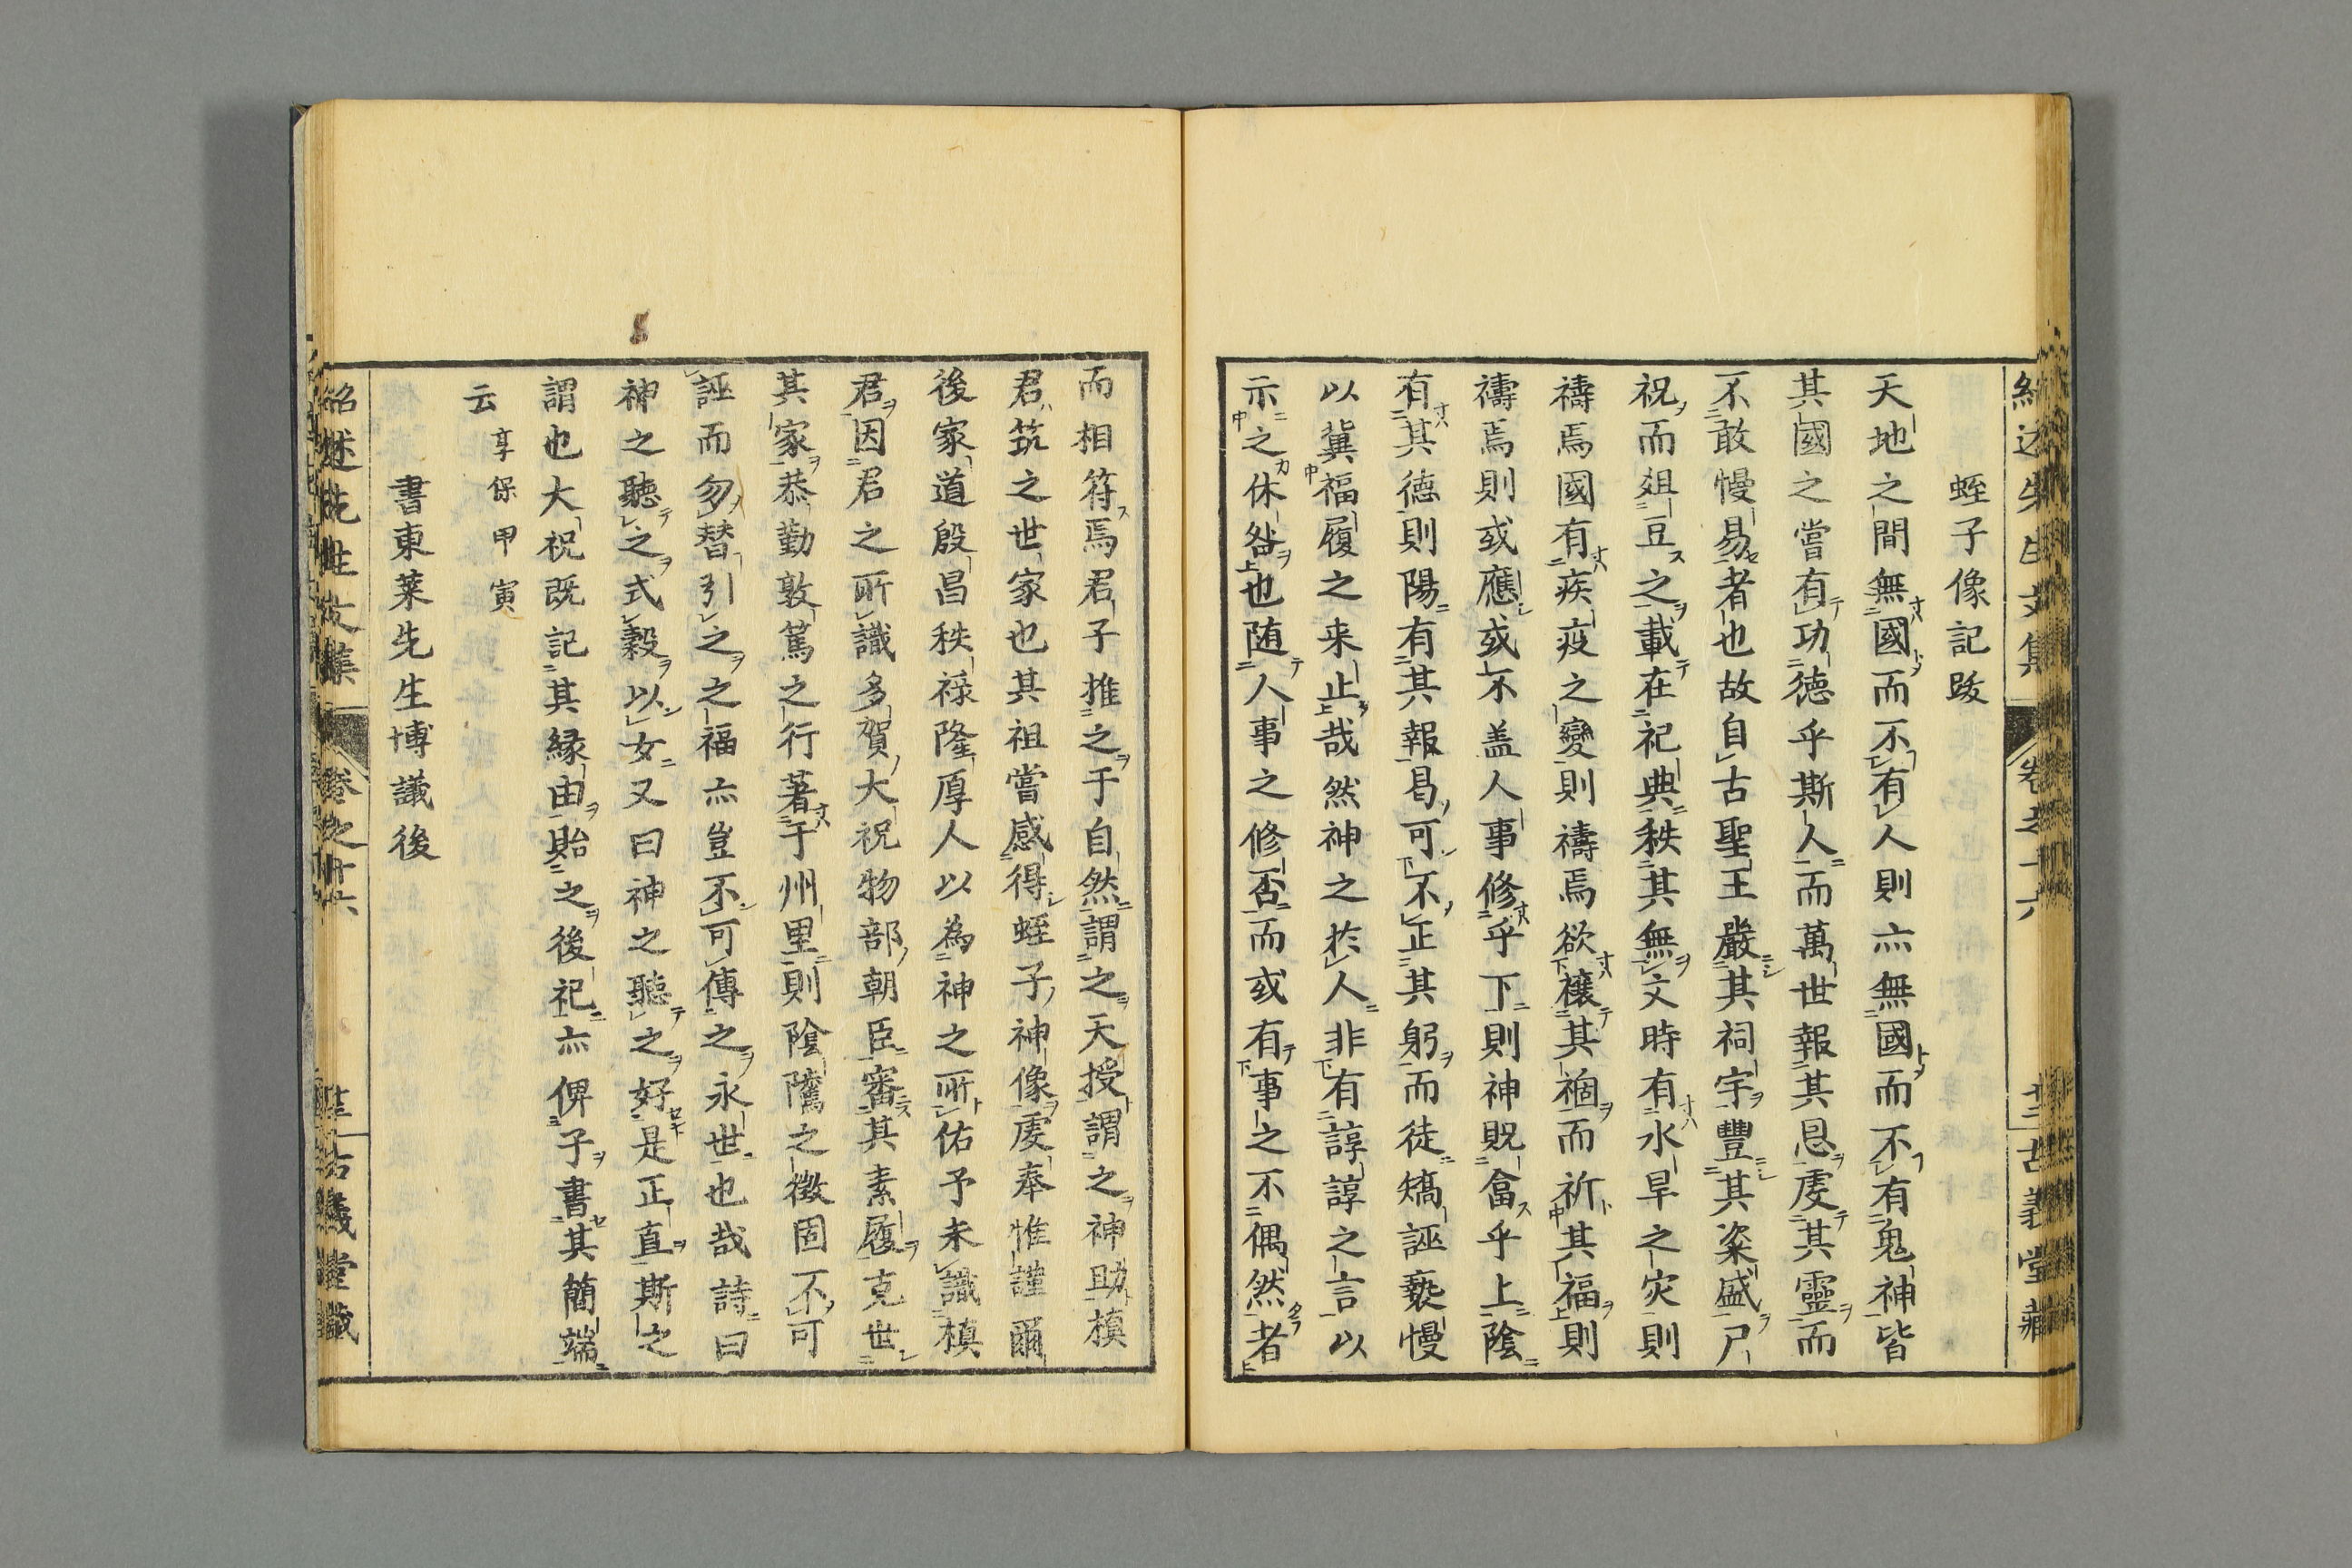 蛭子像記跋
天地之間無國而不有人則亦無國而不有鬼神皆
其國之嘗有功德乎斯人而萬世報其恩虔其靈而
不敢慢易者也故自古聖王嚴其祠宇豐其粢盛尸
祝而俎豆之載在祀典秩其無文時有水旱之灾則
禱焉國有疾疫之變則禱焉欲禳其禍而祈其福則
禱焉則或應或不盖人事修乎下則神貺畣乎上陰
有其德則陽有其報曷可不正其躬而徒矯誣褻慢
以冀福履之来止哉然神之於人非有諄諄之言以
示之休咎也随人事之修否而或有事之不偶然者
而相符焉君子推之于自然謂之天授謂之神助槙
君筑之世家也其祖嘗感得蛭子神像虔奉惟謹爾
後家道殷昌秩祿隆厚人以為神之所佑予未識槙
君因君之所識多賀大祝物部朝臣審其素履克世
其家恭勤敦篤之行著于州里則陰隲之徴固不可
誣而勿替引之之福亦豈不可傳之永世也哉詩曰
神之聽之式穀以女又曰神之聽之好是正直斯之
謂也大祝既記其縁由貽之後祀亦俾予書其簡端
云 享保甲寅
書東萊先生博議後
紹述先生文集 卷之十六 古義堂藏